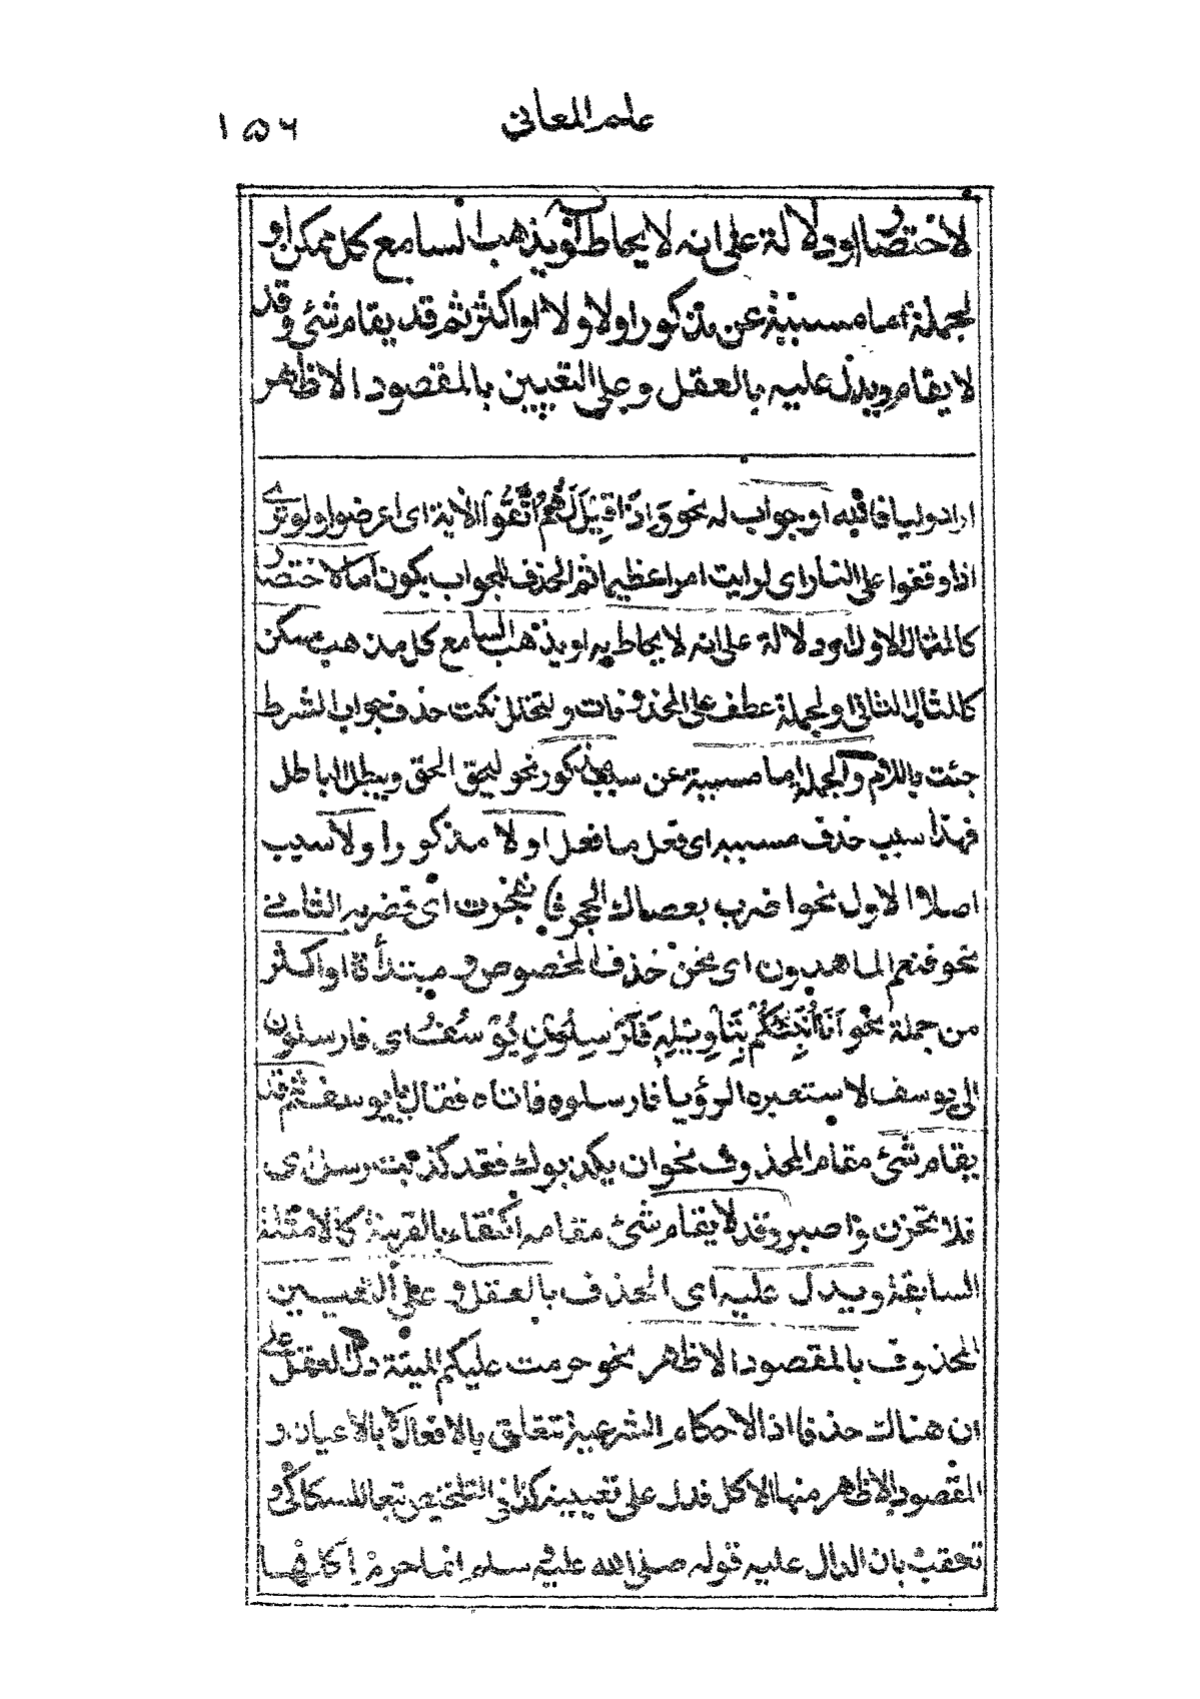 علم المعانى
١٥٦
لاختصار او دلالة على انه لا يحاط به او يذهب السامع كل ممكن او
لجملة اما مسببة عن مذكور او لا ولا او اكثر ثم قد يقام شئ وقد
لا يقام ويدل عليه بالعقل وعلى التعيين بالمقصود الاظهر
اراد وليا فاقبه او جواب له نحو وَاِذَا قِيْلَ لَهُمُ اتَّقُوْا الآية اى اعرضوا ولو ترى
اذ اوقفوا على النار اى لرايت امرا عظيما ثم الحذف للجواب يكون اما لاختصار
كالمثال الاول او دلالة على انه لا يحاط به او يذهب السامع كل مذهب ممكن
كالمثال الثانى او لجملة عطف على المحذوفات ولتخلل نكت حذف جواب الشرط
جئت باللام والجملة اما مسببة عن سبب مذكور نحو ليحق الحق ويبطل الباطل
فهذا سبب حذف مسببه اى فعل ما فعل او لا مذكور او لا سبب
اصلا الاول نحو اضرب بعصاك الحجر فانفجرت اى فضربه الثانى
نحو فنعم الماهدون اى نحن حذف المخصوص ومبتدأه او اكثر
من جملة نحو اَنَا اُنَبِّئُكُمْ بِتَأْوِيْلِهٖ فَاَرْسِلُوْنِ يُوْسُفُ اى فارسلون
الى يوسف لاستعبره الرؤيا فارسلوه فاتاه فقال يا يوسف ثم قد
يقام شئ مقام المحذوف نحو ان يكذبوك فقد كذبت رسل اى
فلا تحزن واصبر وقد لا يقام شئ مقامه اكتفاء بالقرينة كالامثلة
السابقة ويدل عليه اى الحذف بالعقل وعلى التعيين
المحذوف بالمقصود الاظهر نحو حرمت عليكم الميتة دل العقل على
ان هناك حذفا اذ الاحكام الشرعية تتعلق بالافعال لا بالاعيان و
المقصود الاظهر منها الاكل فدل على تعيينه كذا فى التلخيص تبعا للسكاكى و
تعقب بان الدال عليه قوله صلى الله عليه وسلم انما حرم اكلها